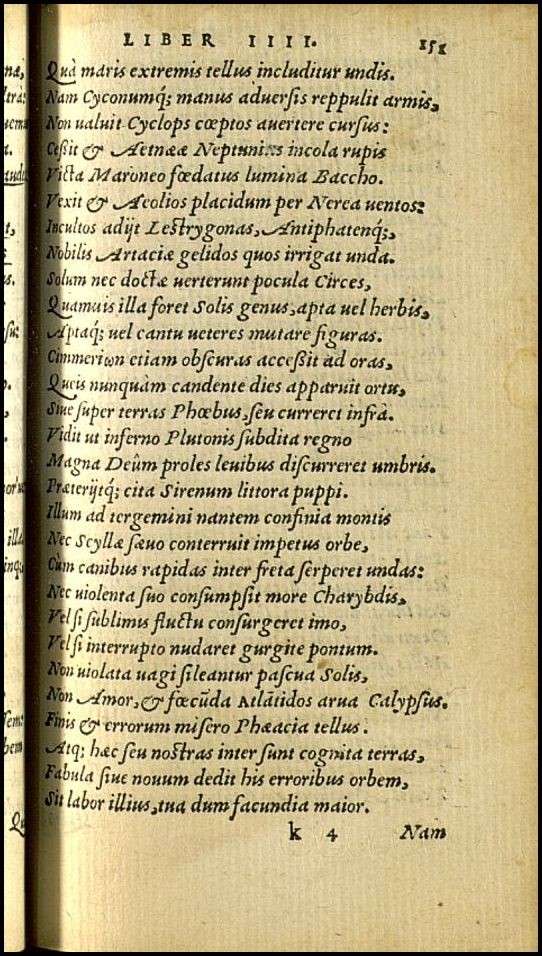 LIBER IIII. 151
Quà maris extremis tellus includitur undis.
Nam Cyconumq́; manus aduersis reppulit armis,
Non ualuit Cyclops cœptos auertere cursus:
Ceßit & Aetnææ Neptunius incola rupis
Victa Maroneo fœdatus lumina Baccho.
Vexit & Aeolios placidum per Nerea uentos:
Incultos adijt Lestrygonas, Antiphatenq́;,
Nobilis Artaciæ gelidos quos irrigat unda.
Solum nec doctæ uerterunt pocula Circes,
Quamuis illa foret Solis genus, apta uel herbis,
Aptaq́; uel cantu ueteres mutare figuras.
Cimmeriωn etiam obscuras acceßit ad oras,
Queis nunquàm candente dies apparuit ortu,
Siue super terras Phœbus, seu curreret infrà.
Vidit ut inferno Plutonis subdita regno
Magna Deûm proles leuibus discurreret umbris.
Præterijtq́; cita Sirenum littora puppi.
Illum ad tergemini nantem confinia montis
Nec Scyllæ sæuo conterruit impetus orbe,
Cùm canibus rapidas inter freta serperet undas:
Nec uiolenta suo consumpsit more Charybdis,
Vel si sublimis fluctu consurgeret imo,
Vel si interrupto nudaret gurgite pontum.
Non uiolata uagi sileantur pascua Solis,
Non Amor, & fœcũda Atlãtidos arua Calypsus.
Finis & errorum misero Phæacia tellus.
Atq; hæc seu nostras inter sunt cognita terras,
Fabula siue nouum dedit his erroribus orbem,
Sit labor illius, tua dum facundia maior.
k 4 Nam